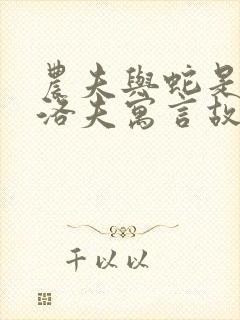 農夫與蛇是
洛夫寓言故
千以以